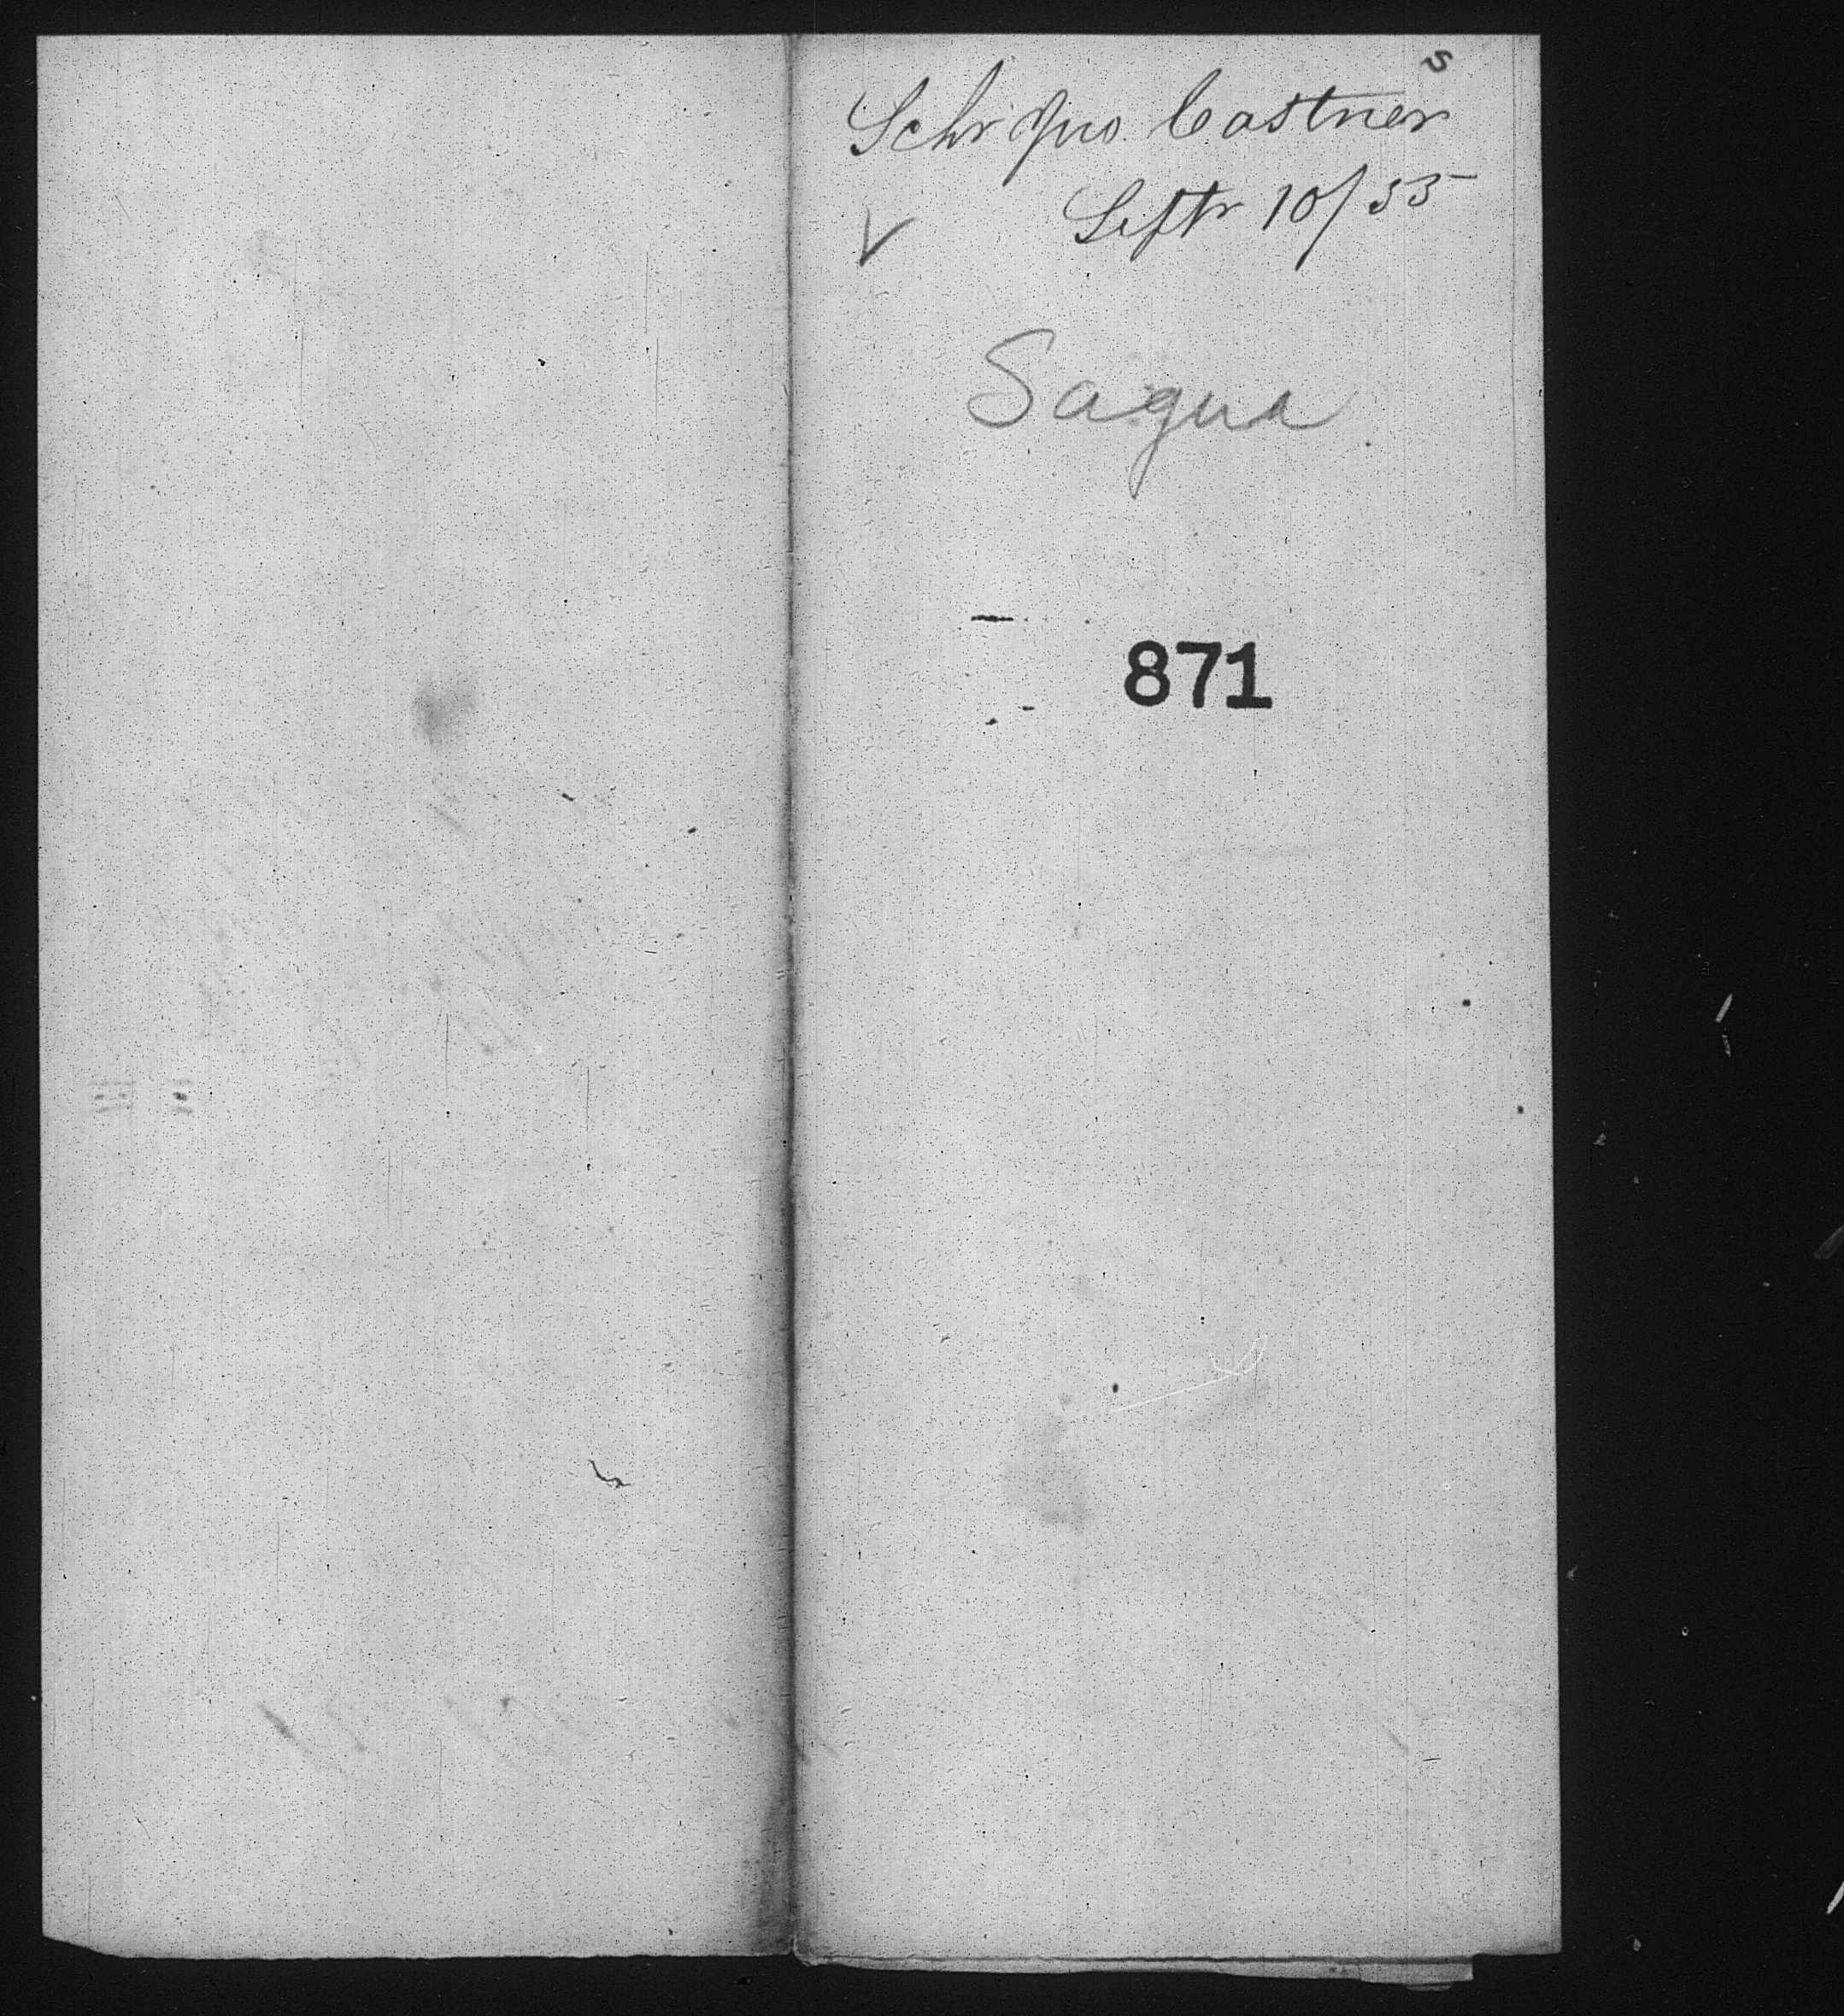 s
Schr Jno. Castner
Septr 10/55
V
Sagua
871